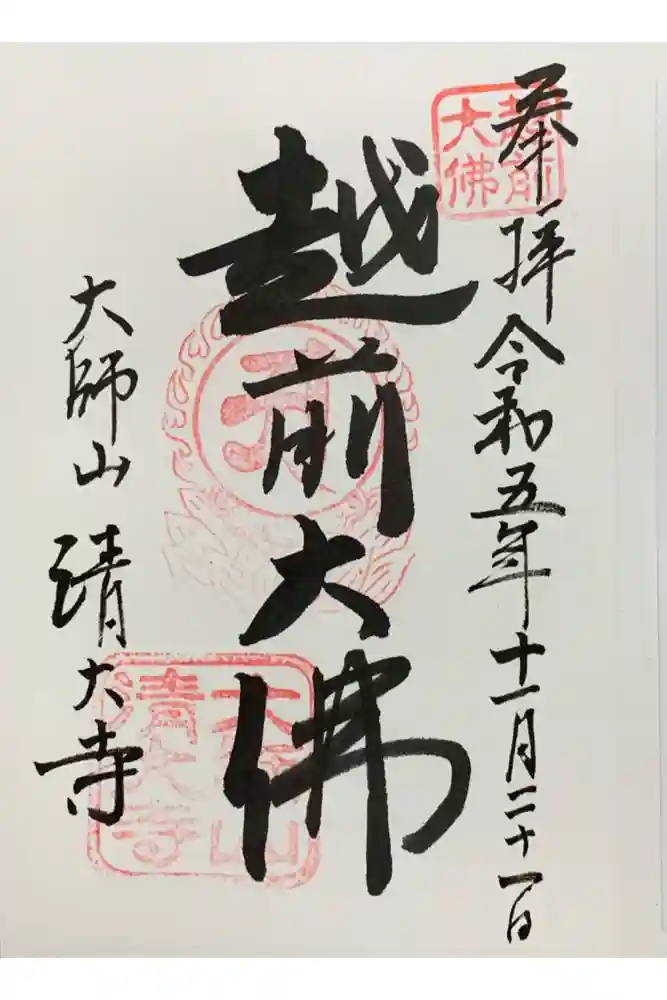 奉拝 令和五年十一月二十一日
越前大佛
越前大佛
大師山 清大寺
大師山清大寺